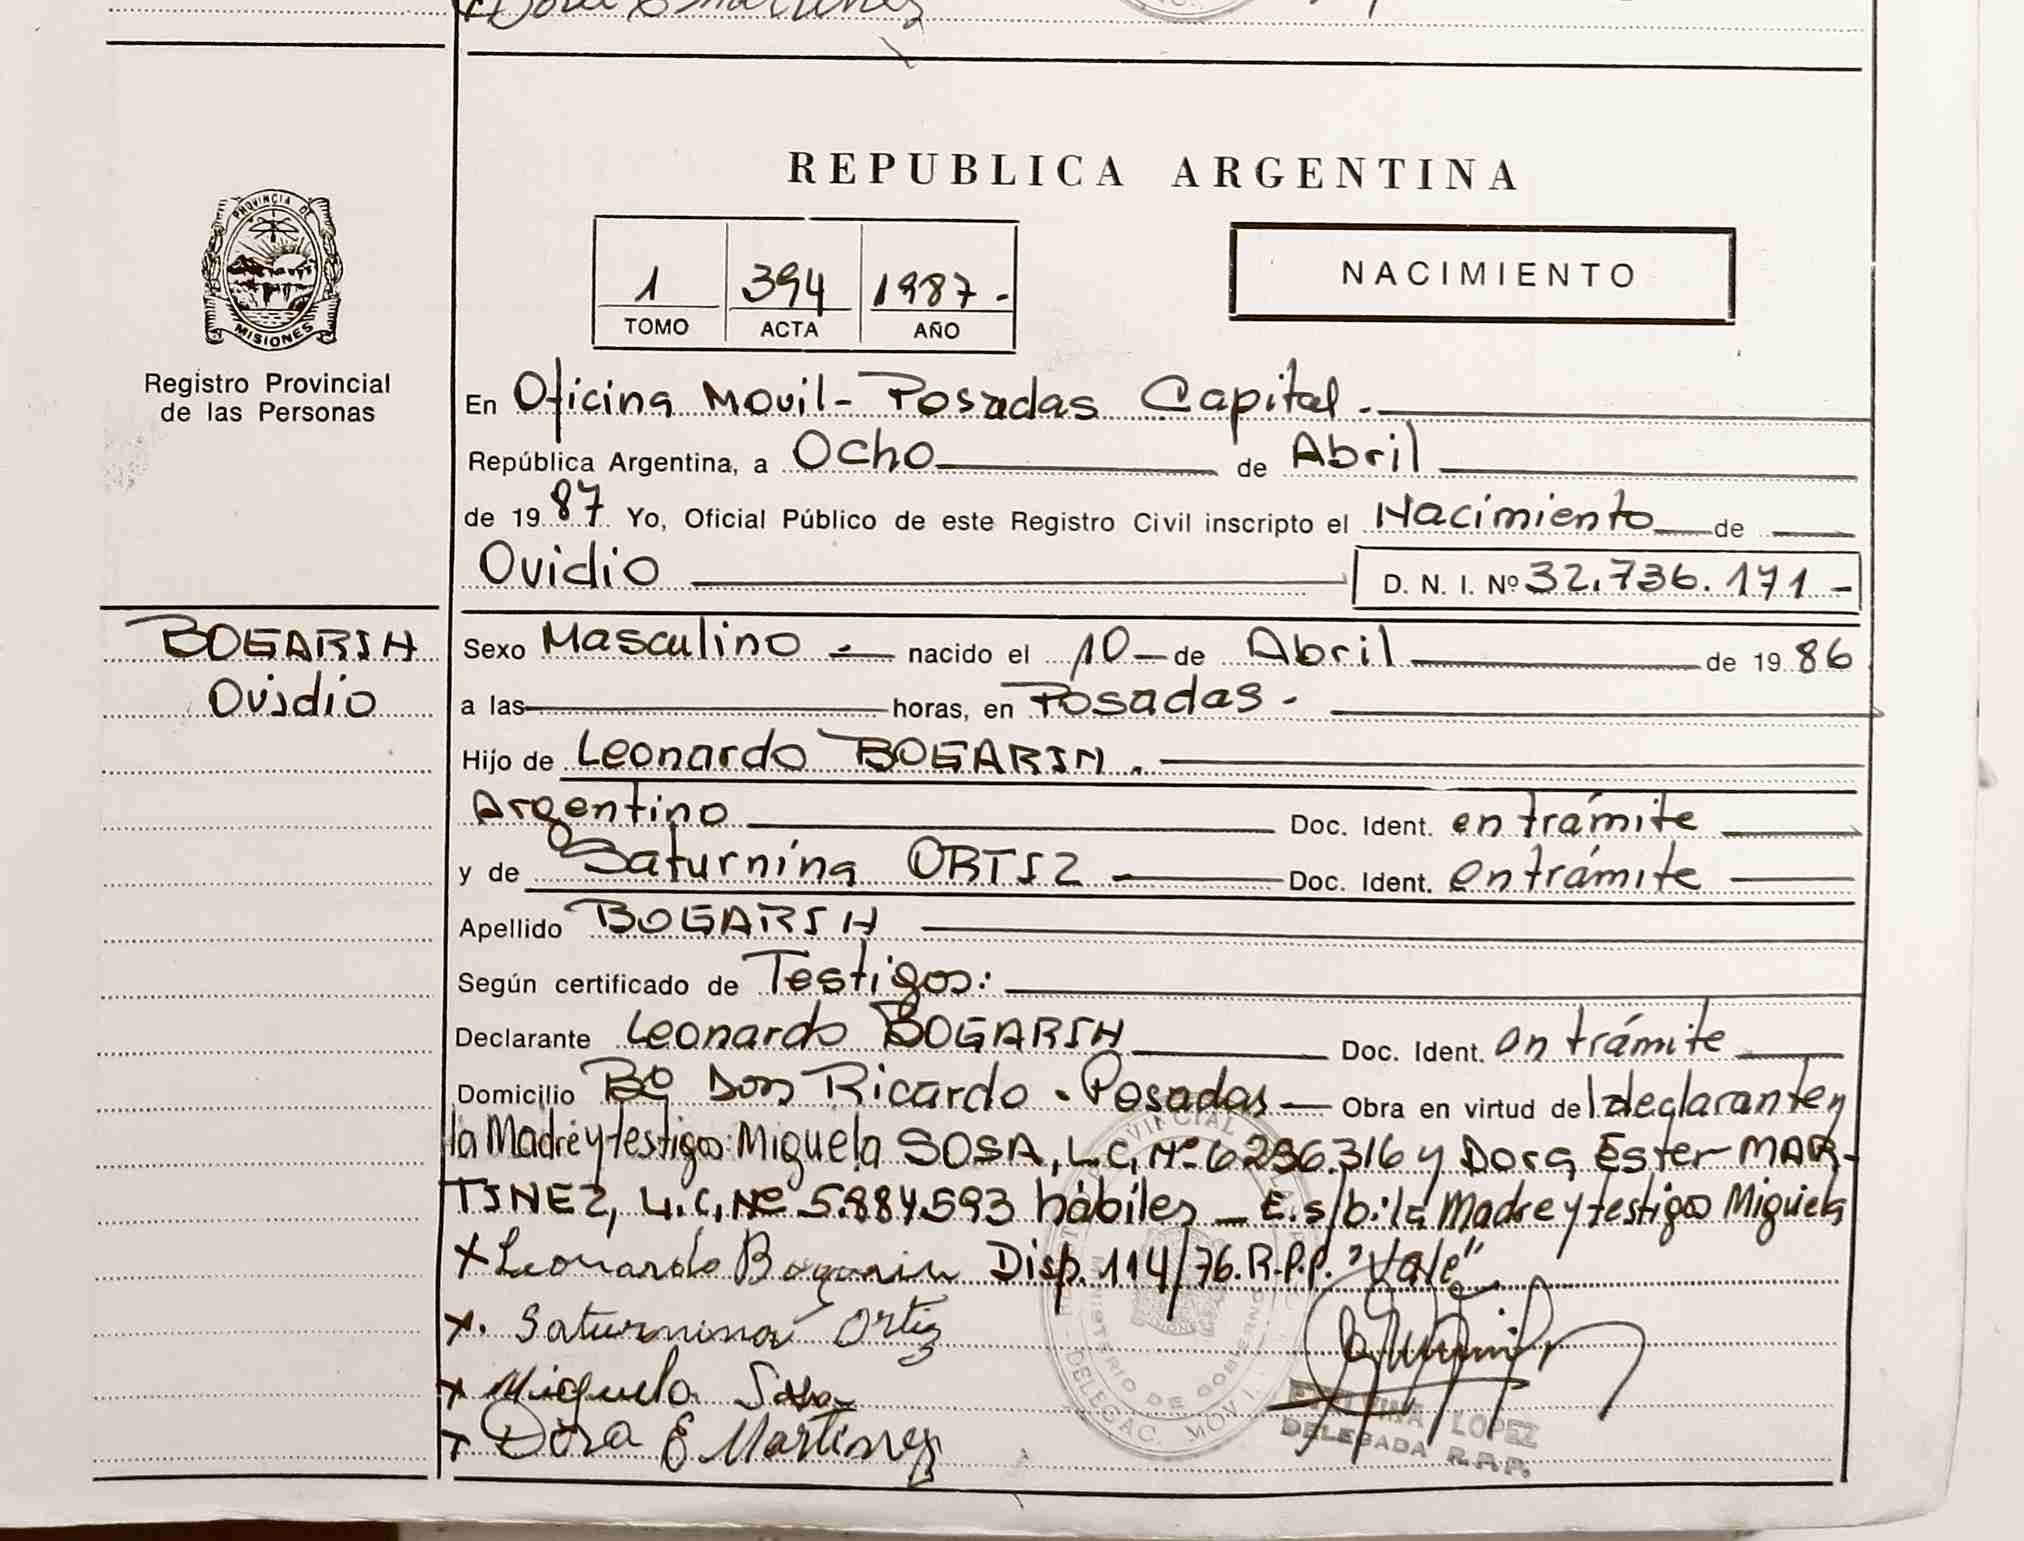 REPUBLICA ARGENTINA
PROVINCIA DE
MISIONES
Registro Provincial
de las Personas
1 394 1987.-
TOMO ACTA AÑO
NACIMIENTO
En Oficina Movil - Posadas Capital.-
República Argentina, a Ocho de Abril
de 1987 Yo, Oficial Público de este Registro Civil inscripto el Nacimiento de
Ovidio D. N. I. Nº 32.736.171.-
BOGARIN
Ovidio
Sexo Masculino nacido el 10 de Abril de 1986
a las horas, en Posadas -
Hijo de Leonardo BOGARIN.-
Argentino Doc. Ident. en trámite
y de Saturnina ORTIZ Doc. Ident. en trámite
Apellido BOGARIN
Según certificado de Testigos:
Declarante Leonardo BOGARIN Doc. Ident. en trámite
Domicilio Bº Don Ricardo - Posadas - Obra en virtud del declarante,
la Madre y testigos: Miguela SOSA, L.C. Nº 6.236.316 y Dora Ester MAR-
TINEZ, L.C. Nº 5.884.593 hábiles - E. s/b: la Madre y testigos Miguela
x Leonardo Bogarin Disp. 114/76. R.P.P. "Vale"
x. Saturnina Ortiz
x Miguela Sosa
x Dora E Martinez
MINISTERIO DE GOBIERNO
DELEGAC. MOVI
LOPEZ
DELEGADA R.P.P.